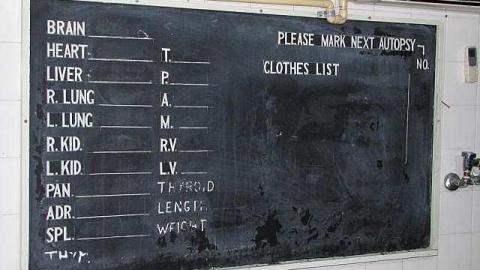 BRAIN
HEART T.
LIVER P.
R. LUNG A.
L. LUNG M.
R. KID. R.V.
L. KID. L.V.
PAN. THYROID
ADR. LENGTH
SPL. WEIGHT
THY.
PLEASE MARK NEXT AUTOPSY
NO.
CLOTHES LIST